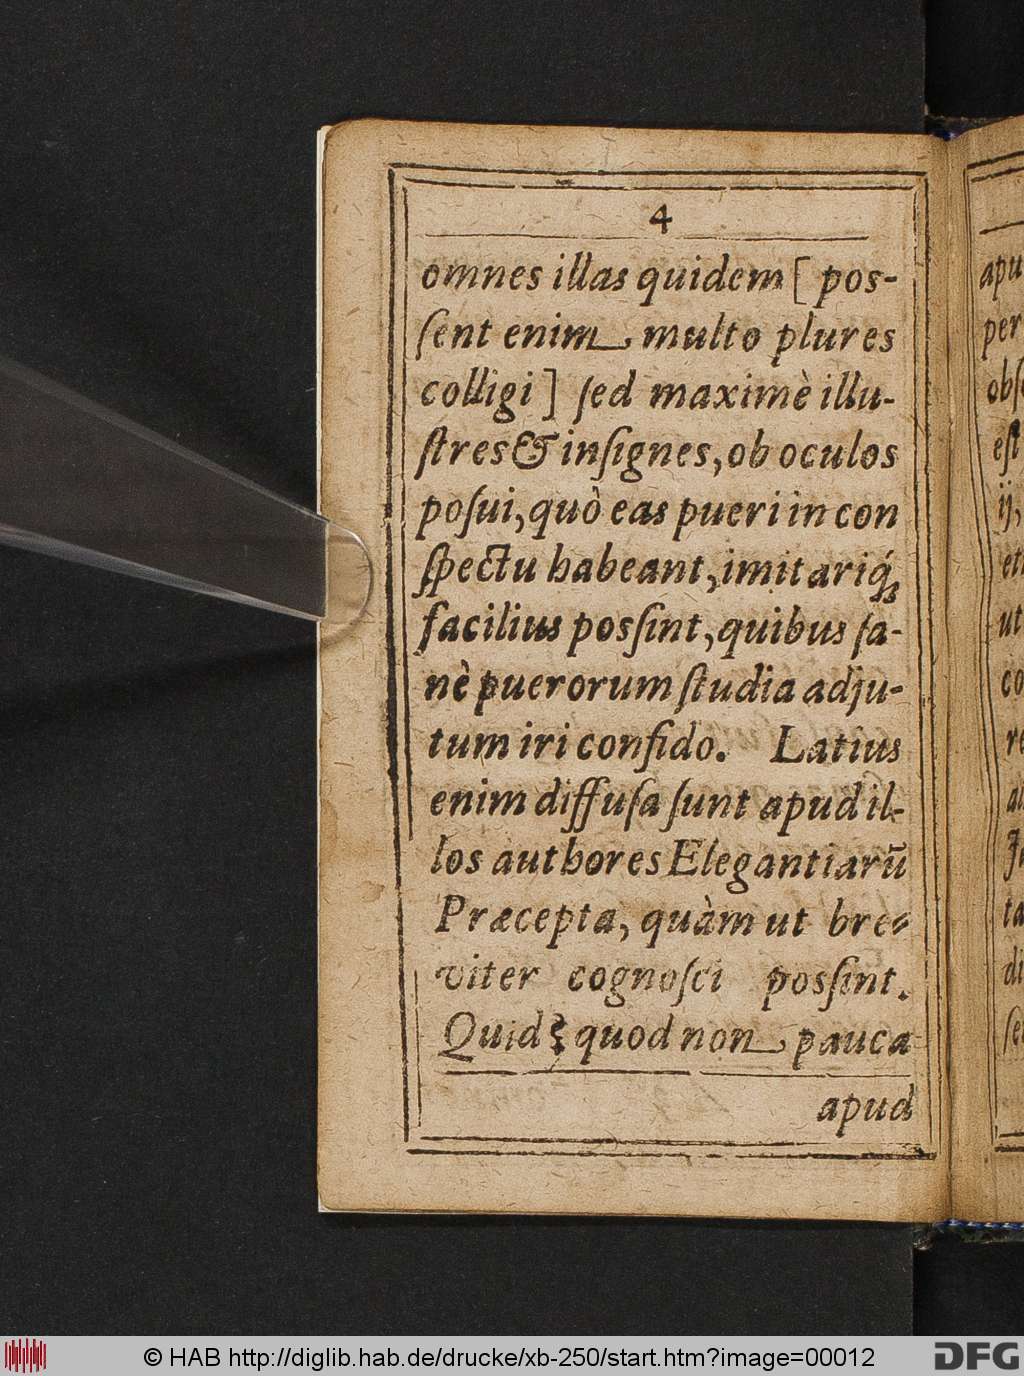 4
omnes illas quidem [ pos-
ſent enim multo plures
colligi ] ſed maximè illu-
ſtres & inſignes, ob oculos
poſui, quò eas pueri in con
ſpectu habeant, imitariq́;
facilius posſint, quibus ſa-
nè puerorum ſtudia adju-
tum iri confido. Latius
enim diffuſa ſunt apud il-
los authores Elegantiarũ
Præcepta, quàm ut bre-
viter cognoſci posſint.
Quid? quod non pauca
apud
apu
per
obſ
eſt
ij,
et
ut
co
re
ta
di
© HAB http://diglib.hab.de/drucke/xb-250/start.htm?image=00012
DFG